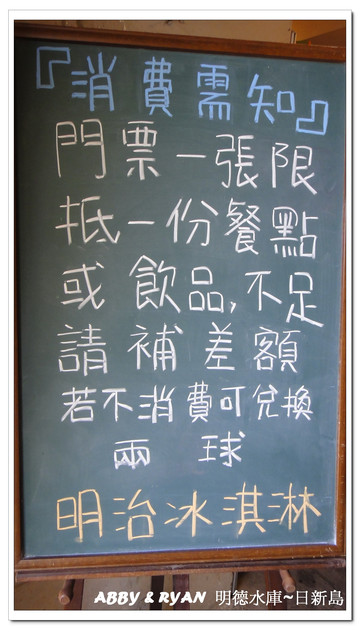 『消費需知』
門票一張限
抵一份餐點
或飲品,不足
請補差額
若不消費可兌換
兩球
明治冰淇淋
ABBY & RYAN 明德水庫~日新島